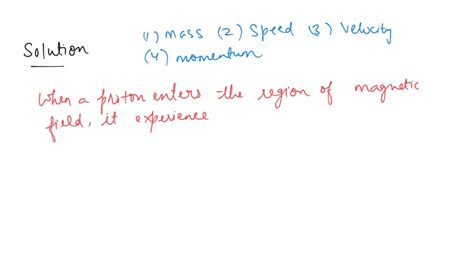 Solution
(1) Mass (2) Speed (3) Velocity
(4) momentum
When a proton enters the region of magnetic
field, it experience